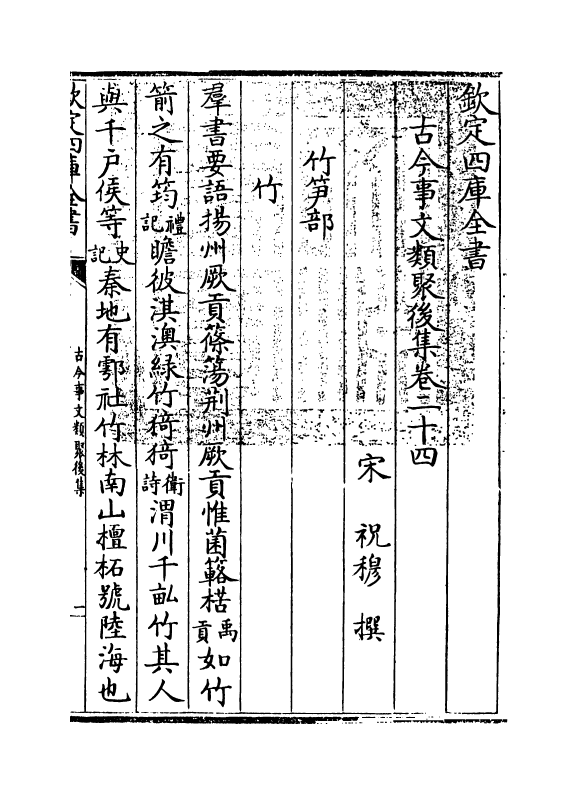 欽定四庫全書
古今事文類聚後集卷二十四
宋 祝穆 撰
竹笋部
竹
羣書要語揚州厥貢篠簜荆州厥貢惟菌簵楛禹貢如竹
箭之有筠禮記瞻彼淇澳緑竹猗猗衛詩渭川千畝竹其人
與千户侯等史記秦地有鄠社竹林南山檀柘號陸海也
欽定四庫全書
古今事文類聚後集